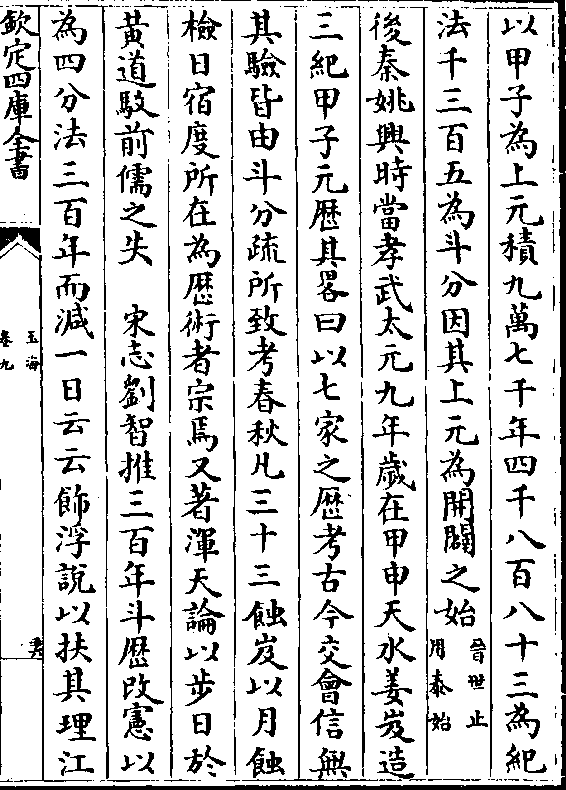 以甲子為上元積九萬七千年四千八百八十三為紀
法千三百五為斗分因其上元為開闢之始晉世止用泰始
後秦姚興時當孝武太元九年歲在甲申天水姜岌造
三紀甲子元歴其畧曰以七家之歴考古今交會信無
其驗皆由斗分疏所致考春秋凡三十三蝕岌以月蝕
檢日宿度所在為歴術者宗焉又著渾天論以步日於
黃道駮前儒之失 宋志劉智推三百年斗歴改憲以
為四分法三百年而減一日云云飾浮說以扶其理江
欽定四庫全書
玉海
卷九